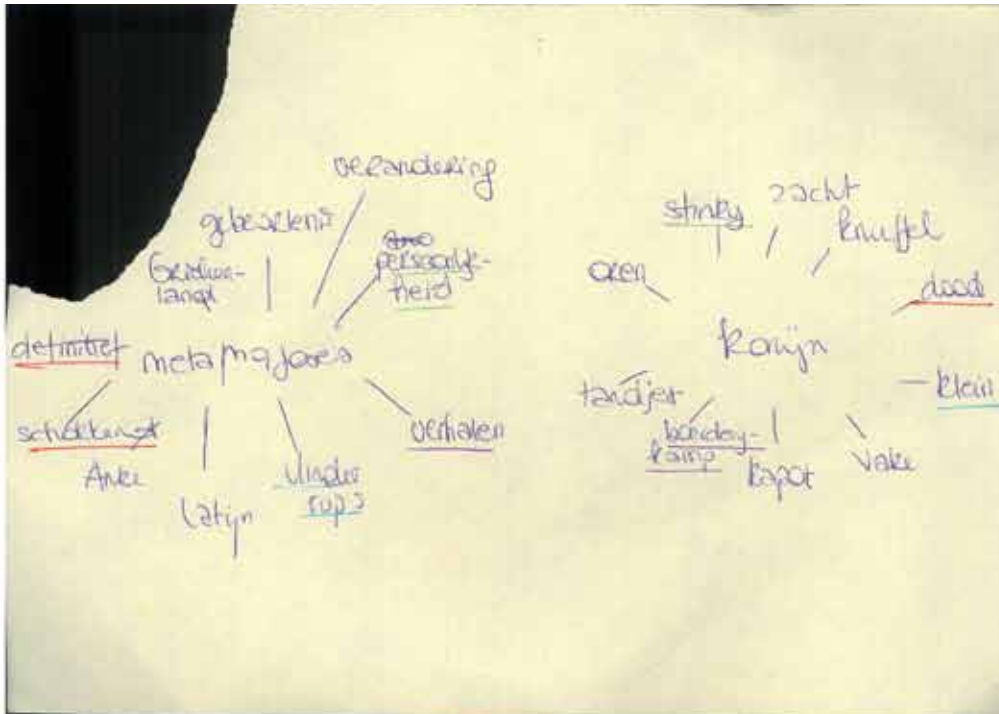 verandering
gebeurtenis
persoonlijk-
heid
definitief
metamorfose
verhalen
Anke
Latijn
Vlinder
rups
stinky
zacht
knuffel
oren
dood
konijn
klein
tandjes
kapot
Vake